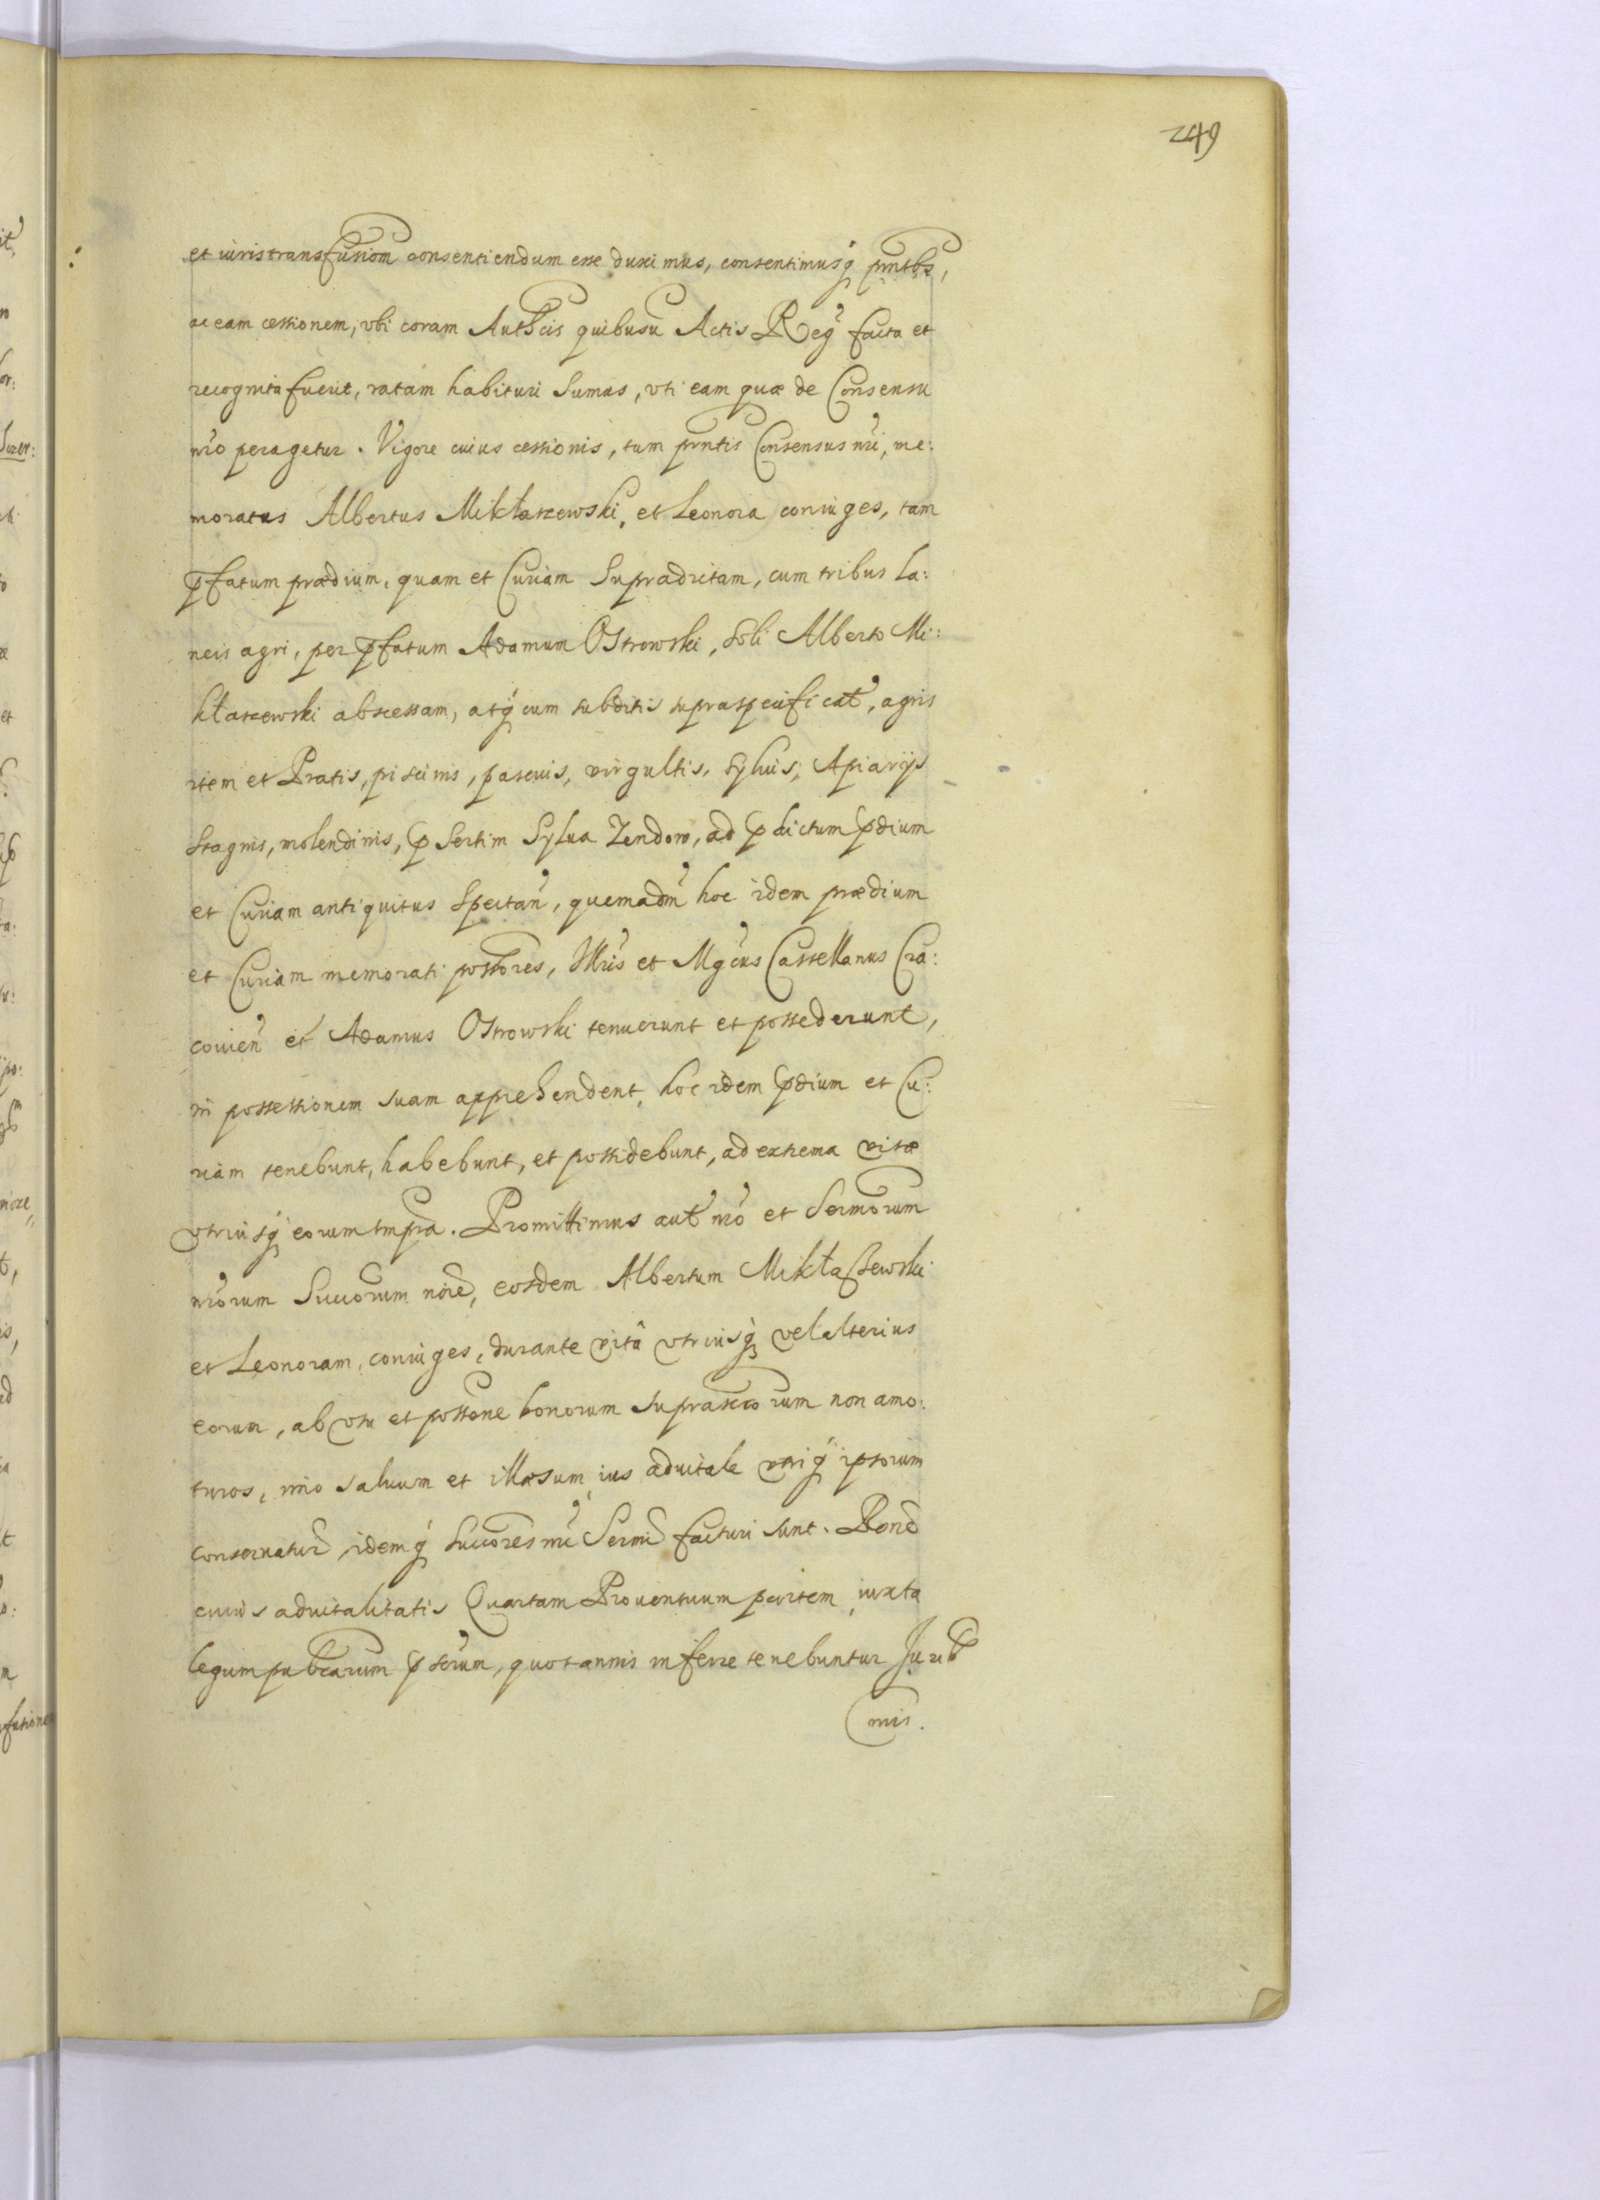 249
et iuris transfusiom consentiendum esse duximus, consentimusq prntbs,
ac eam cessionem, vbi coram Authcis quibusu Actis Reg facta et
recognita fuerit, ratam habituri sumus, vti eam quæ de Consensu
nro peragetur. Vigore cuius cessionis, tum prntis Consensus nri, me:
moratus Albertus Mikłaszewski, et Leonora coniuges, tam
pfatum prædium, quam et Curiam supradictam, cum tribus La:
neis agri, per pfatum Adamum Ostrowski, soli Alberto Mi:
kłaszewski abscessam, atq cum subditis supraspecificat, agris
item et Pratis, piscinis, pascuis, virgultis, syluis, Apiarijs
stagnis, molendinis, psertim Sylua Zendow, ad pdictum pdium
et Curiam antiquitus spectan, quemadm hoc idem prædium
et Curiam memorati possores, Illris et Mgcus Castellanus Cra:
couien et Adamus Ostrowski tenuerunt et possederunt,
in possessionem suam apprehendent, hoc idem pdium et Cu:
riam tenebunt, habebunt, et possidebunt, ad extrema vitæ
vtriusq eorum tmpra. Promittimus aut nro et Sermorum
nrorum Succorum noie, eosdem Albertum Mikłaszewski
et Leonoram, coniuges, durante vitâ vtriusq vel alterius
eorum, ab vsu et possone bonorum suprascrorum non amo:
turos, imo saluum et illæsum ius aduitale vtriq ipsorum
conseruatur, idemq succores nri Sermi facturi sunt. Rone
cuius aduitalitatis Quartam Prouentuum partem, iuxta
legum pubcarum pscrum, quotannis inferre tenebuntur Jurib
mis.